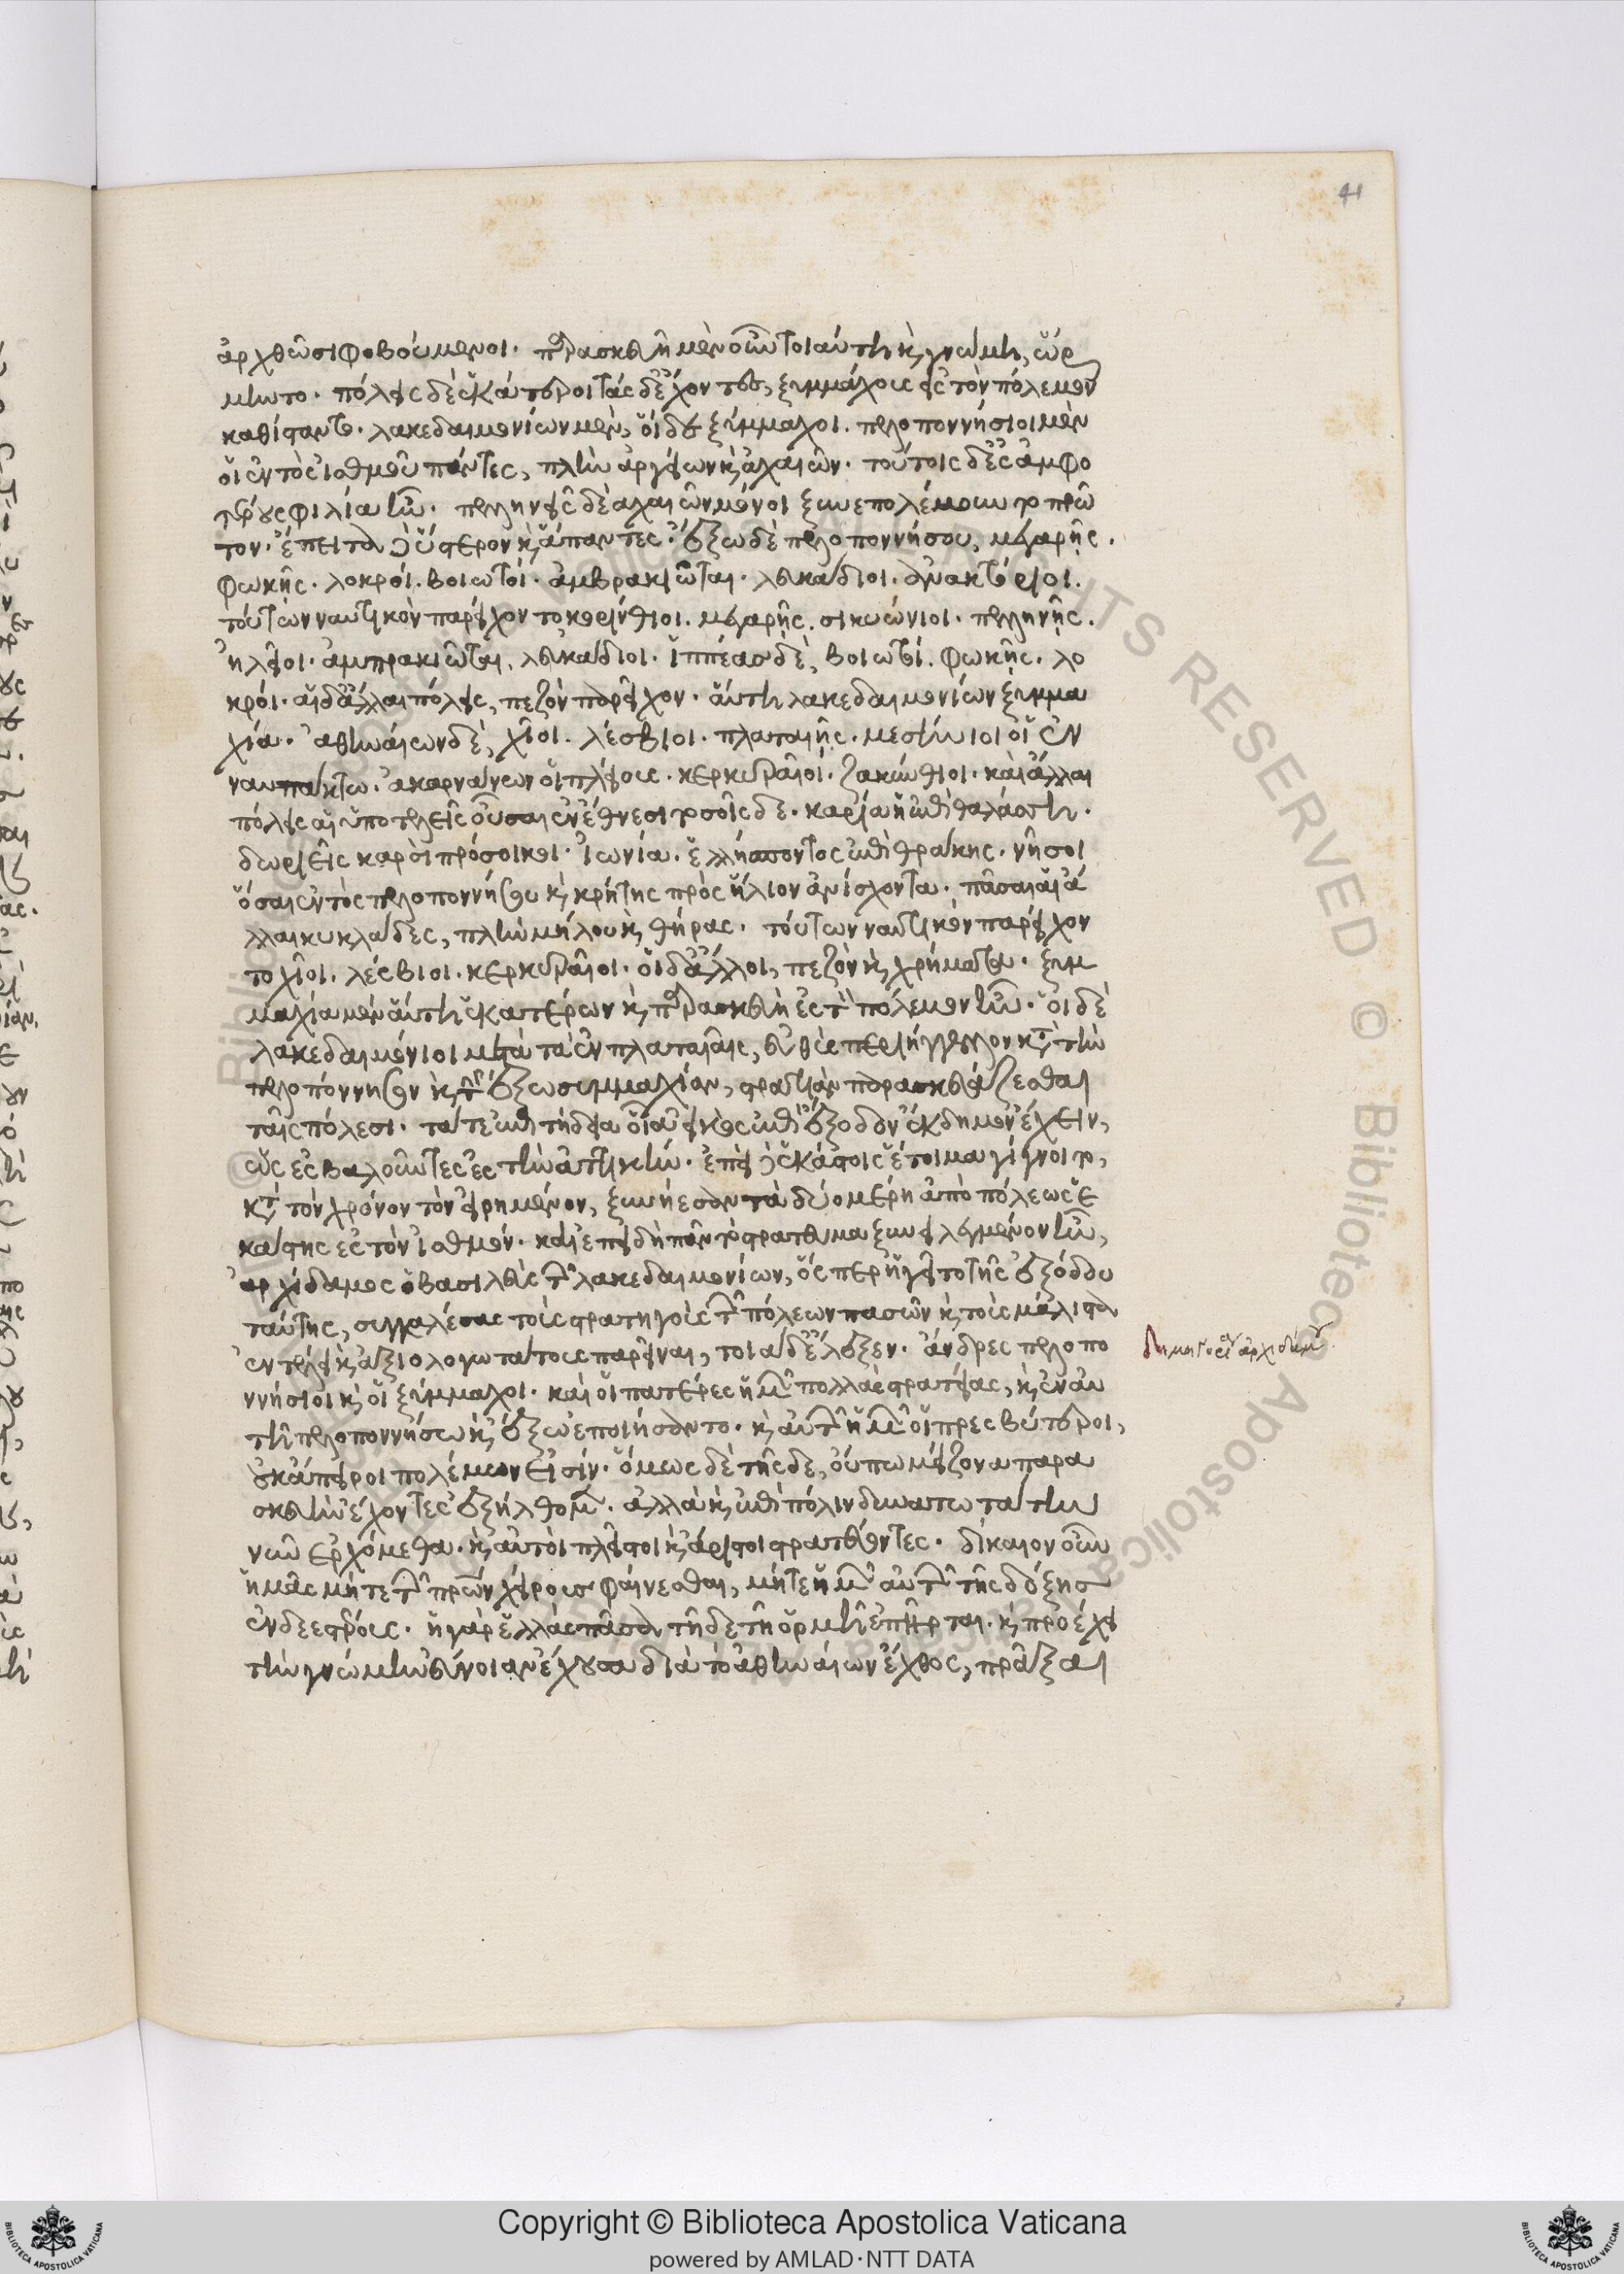 41
ἀρχθῶσι φοβούμενοι· παρασκευῆ μὲν οὖν τοιαύτη καὶ γνώμη, ὥρ
μηντο· πόλεις δὲ ἑκάτεροι τάσδε ἔχοντες, ξυμμάχους ἐς τὸν πόλεμον
καθίσταντο· λακεδαιμονίων μὲν, οἵδε ξύμμαχοι. πελοποννήσιοι μὲν
οἱ ἐντὸς ἰσθμοῦ πάντες, πλὴν ἀργείων καὶ ἀχαιῶν· τούτοις δὲ ἐς ἀμφο
τέρους φιλία ἦν· πελληνεῖς δὲ ἀχαιῶν μόνοι ξυνεπολέμουν το πρῶ
τον· ἔπειτα δὲ ὕστερον καὶ ἅπαντες· ἔξω δὲ πελοποννήσου, μεγαρῆς.
φωκῆς. λοκροί. βοιωτοί. ἀμβρακιῶται. λευκάδιοι. ἀνακτόριοι.
τούτων ναυτικὸν παρείχοντο κορίνθιοι. μεγαρῆς. σικυώνιοι. πελληνῆς.
ἠλεῖοι. ἀμπρακιῶται. λευκάδιοι. ἱππέας δὲ, βοιωτοί. φωκῆς. λο
κροί. αἱ δ' ἄλλαι πόλεις, πεζὸν παρεῖχον· αὕτη λακεδαιμονίων ξυμμα
χία· ἀθηναίων δὲ, χῖοι. λέσβιοι. πλαταιῆς. μεσήνιοι οἱ ἐν
ναυπάκτω. ἀκαρνάνων οἱ πλείους. κερκυραῖοι. ζακύνθιοι. καὶ ἄλλαι
πόλεις αἱ ὑποτελεῖς οὖσαι ἐν ἔθνεσι τοσοῖσδε. καρία ἡ ἐπὶ θαλάσση.
δωριεῖς καρσὶ πρόσοικοι. ἰωνία. ἑλλήσποντος ἐπὶ θράκης. νῆσοι
ὅσαι ἐντὸς πελοποννήσου καὶ κρήτης πρὸς ἥλιον ἀνίσχοντα. πᾶσαι αἱ ἄ
λλαι κυκλάδες, πλὴν μήλου καὶ θήρας. τούτων ναυτικὸν παρείχον
το χῖοι. λέσβιοι. κερκυραῖοι. οἱ δ' ἄλλοι, πεζὸν καὶ χρήματα. ξυμ
μαχία μὲν αὕτη ἑκατέρων καὶ παρασκευὴ ἐς τὸν πόλεμον ἦν. οἱ δὲ
λακεδαιμόνιοι μετὰ τὰ ἐν πλαταιαῖς, εὐθὺς περιήγγελλον κατὰ τὴν
πελοπόννησον καὶ τὴν ἔξω συμμαχίαν, στρατιὰν παρασκευάζεσθαι
ταῖς πόλεσι. τά τε ἐπιτήδεια οἷα εἰκὸς ἐπὶ ἔξοδον ἔκδημον ἔχειν,
ὡς ἐσβαλοῦντες ἐς τὴν ἀττικήν. ἐπεὶ δὲ ἑκάστοις ἕτοιμα γίγνοιτο,
κατὰ τὸν χρόνον τὸν εἰρημένον, ξυνήεσαν τὰ δύο μέρη ἀπὸ πόλεως ἑ
κάστης ἐς τὸν ἰσθμόν. καὶ ἐπειδὴ πᾶν τὸ στράτευμα ξυνειλεγμένον ἦν,
ἀρχίδαμος ὁ βασιλεὺς τῶν λακεδαιμονίων, ὅσπερ ἡγεῖτο τῆς ἐξόδου
ταύτης, συγκαλέσας τοὺς στρατηγοὺς τῶν πόλεων πασῶν καὶ τοὺς μάλιστα
ἐν τέλει καὶ ἀξιολογωτάτους παρεῖναι, τοιάδε ἔλεξεν. ἄνδρες πελοπο
ννήσιοι καὶ οἱ ξύμμαχοι. καὶ οἱ πατέρες ἡμῶν πολλὰς στρατείας, καὶ ἐν αὐ
τῆ πελοποννήσω καὶ ἔξω ἐποιήσαντο. καὶ αὐτῶν ἡμῶν οἱ πρεσβύτεροι,
οὐκ ἄπειροι πολέμων εἰσίν. ὅμως δὲ τῆσδε, οὔπω μείζονα παρα
σκευὴν ἔχοντες ἐξήλθομεν. ἀλλὰ καὶ ἐπὶ πόλιν δυνατωτάτην
νῦν ἐρχόμεθα. καὶ αὐτοὶ πλεῖστοι καὶ ἄριστοι στρατεύοντες. δίκαιον οὖν
ἡμᾶς μήτε τῶν πατέρων χείρους φαίνεσθαι, μήτε ἡμῶν αὐτῶν τῆς δόξης
ἐνδεεστέρους. ἡ γὰρ ἑλλὰς πᾶσα τῆδε τῆ ὁρμῆ ἐπῆρται. καὶ προσέχει
τὴν γνώμην εὔνοιαν ἔχουσα διὰ τὸ ἀθηναίων ἔχθος, πρᾶξαι
Copyright © Biblioteca Apostolica Vaticana
powered by AMLAD·NTT DATA